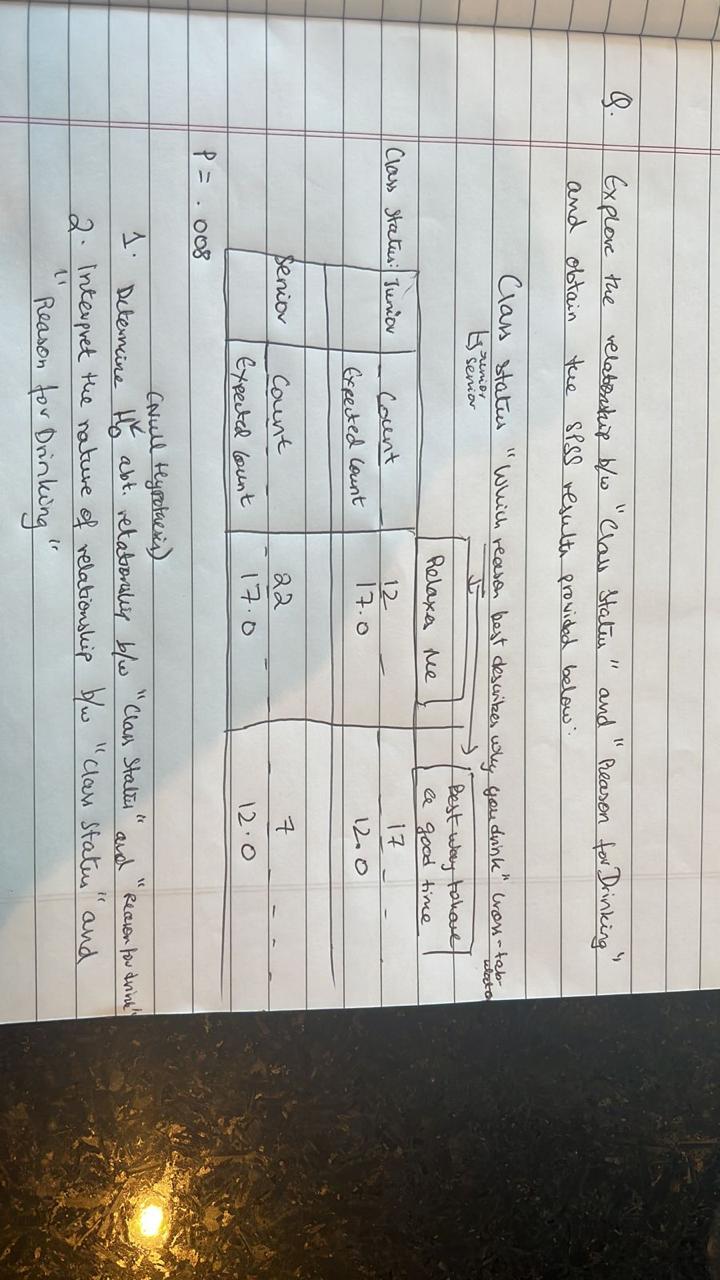 Q. Explore the relationship b/w "Class Status" and "Reason for Drinking"
and obtain the SPSS results provided below:
Class Status "Which reason best describes why you drink" cross-tab-
ulation
↳ Junior
senior
Relaxes Me
Best way to have
a good time
Class Status: Junior
Count 12 17
Expected Count 17.0 12.0
Senior
Count 22 7
Expected Count 17.0 12.0
P = .008
(Null Hypothesis)
1. Determine H₀ abt. relationship b/w "Class Status" and "Reason for drink"
2. Interpret the nature of relationship b/w "Class Status" and
"Reason for Drinking"